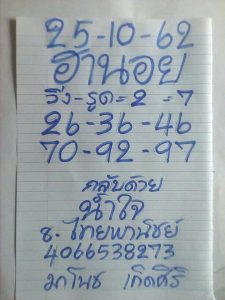 25-10-62
ฮานอย
วิ่ง-รูด=2=7
26-36-46
70-92-97
กลับด้วย
น้ำใจ
ธ.ไทยพานิชย์
4066538273
มาโนช เกิดศิริ